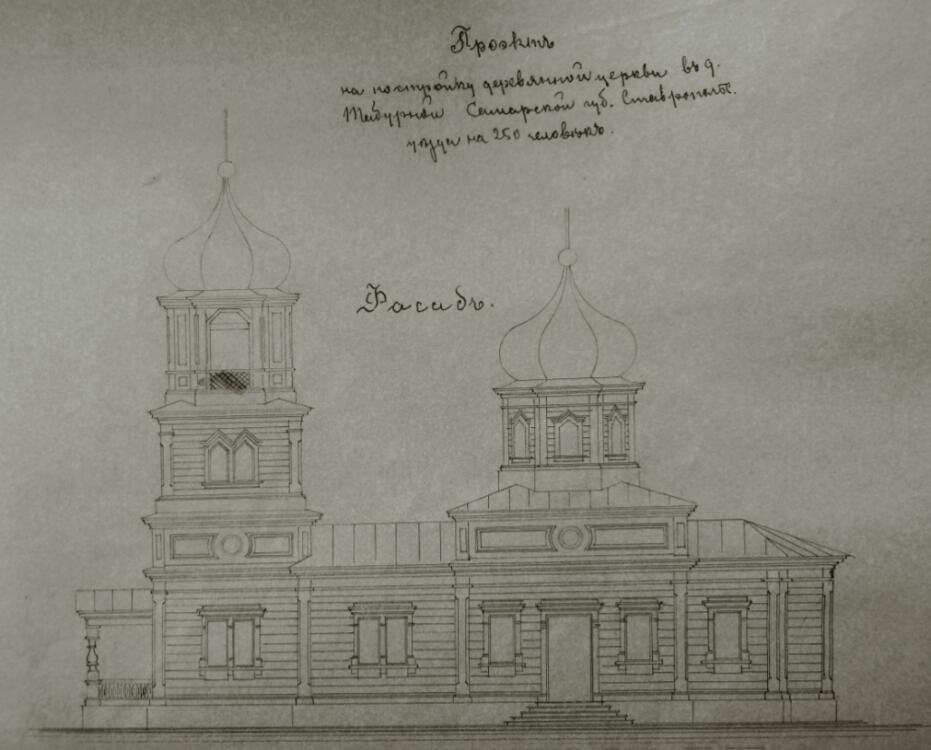 Проэктъ
на постройку деревянной церкви въ д.
Самарской губ. Ставропольс.
уѣзда на 250 человѣкъ.
Фасадъ.